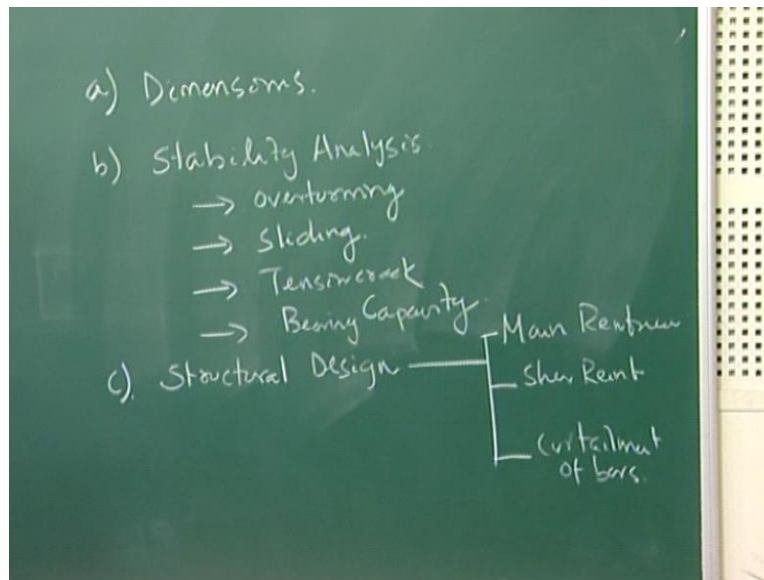 a) Dimensions.
b) Stability Analysis.
→ overturning
→ Sliding.
→ Tension crack
→ Bearing Capacity.
c). Structural Design
Main
Shear Reint
Curtailment
of bars.